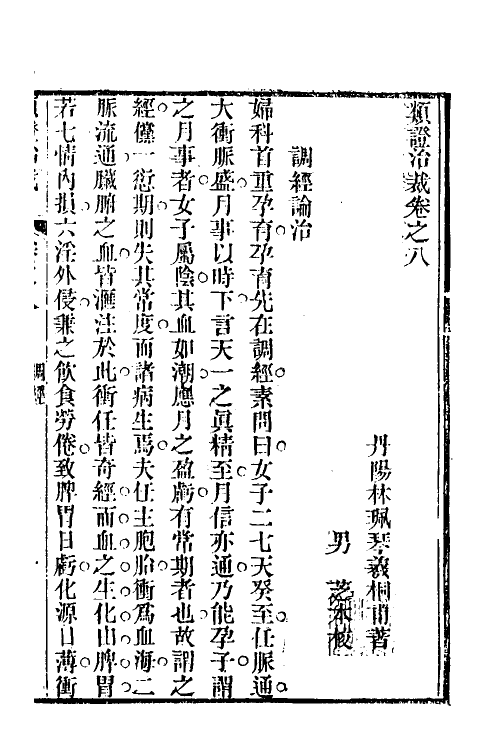 類證治裁卷之八
丹陽林珮琴羲桐甫著
男 芝本校
調經論治
婦科首重孕育孕育先在調經素問曰女子二七天癸至任脈通
大衝脈盛月事以時下言天一之眞精至月信亦通乃能孕子謂
之月事者女子屬陰其血如潮應月之盈虧有常期者也故謂之
經僅一愆期則失其常度而諸病生焉夫任主胞胎衝爲血海二
脈流通臟腑之血皆滙注於此衝任皆奇經而血之生化由脾胃
若七情內損六淫外侵兼之飲食勞倦致脾胃日虧化源日薄衝
調經